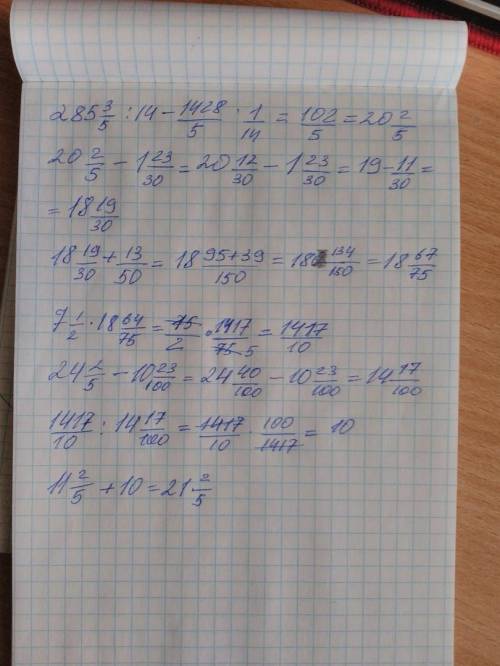 285 3/5 : 14 - 1428/5 · 1/14 = 102/5 = 20 2/5
20 2/5 - 1 23/30 = 20 12/30 - 1 23/30 = 19 - 11/30 =
= 18 19/30
18 19/30 + 13/50 = 18 95+39/150 = 18 134/150 = 18 67/75
7 1/2 · 18 64/75 = 75/2 · 1417/75 5 = 1417/10
24 2/5 - 10 23/100 = 24 40/100 - 10 23/100 = 14 17/100
1417/10 : 14 17/100 = 1417/10 · 100/1417 = 10
11 2/5 + 10 = 21 2/5